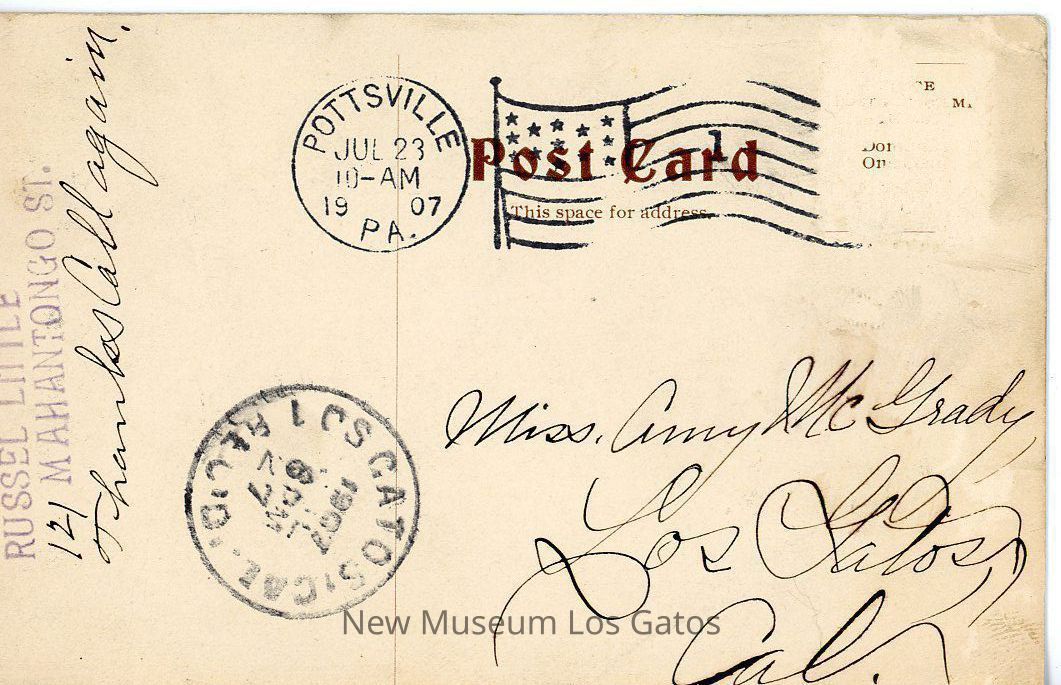 RUSSEL LITTLE
121 MAHANTONGO ST.
Thanks Call again.
POTTSVILLE
JUL 23
10-AM
19 07
PA.
Post Card
This space for address.
LOS GATOS, CAL.
REC'D.
1907
Miss. Amy McGrady
Los Gatos,
Cal.
New Museum Los Gatos